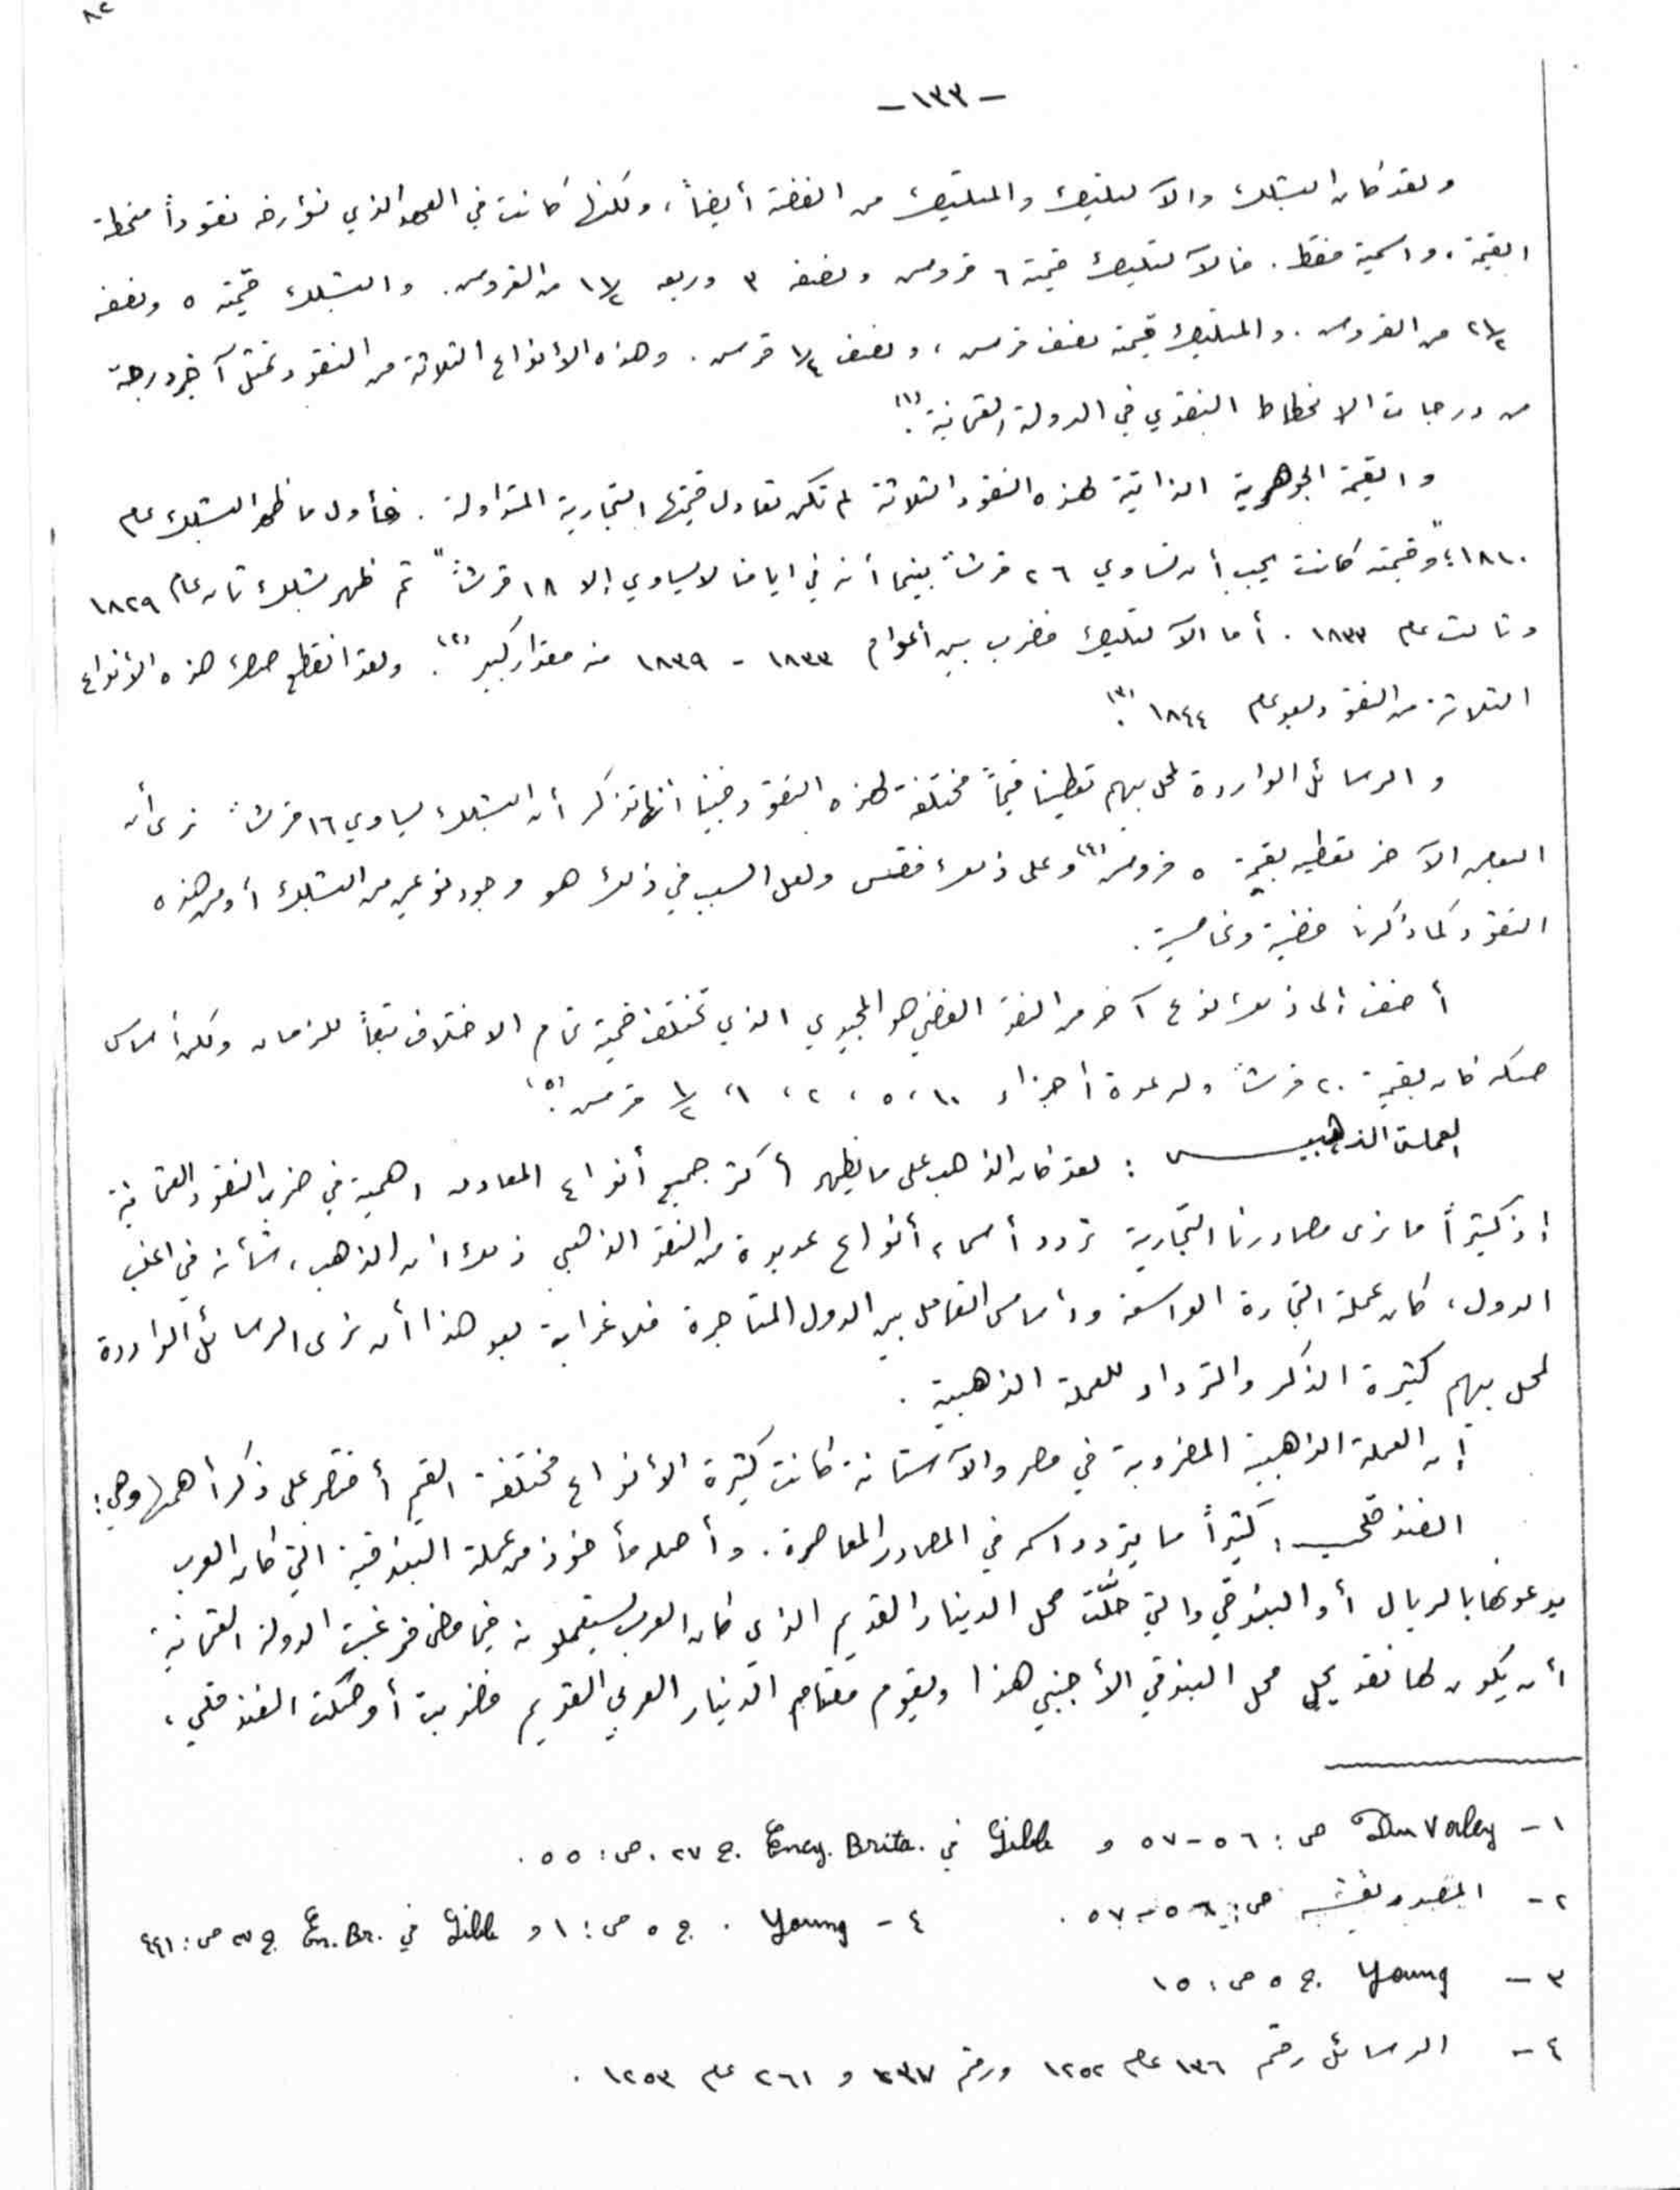 ٨٢
- ١٣٣ -
ولقد كان البشلك والآلتيليك والمتليك من الفضة أيضاً، ولكنها كانت في العهد الذي نؤرخه نقوداً منحطة
القيمة، واسمية فقط. فالآلتيليك قيمته ٦ قروس ونصفه ٣ وربعه ١١/٢ من القروس. والبشلك قيمته ٥ ونصفه
٢١/٢ من القروس. والمتليك قيمته نصف قرس، ونصف ١/٤ قرس. وهذه الأنواع الثلاثة من النقود تمثل آخر درجة
من درجات الانحطاط النقدي في الدولة العثمانية(١).
والقيمة الجوهرية الذاتية لهذه النقود الثلاثة لم تكن تعادل قيمتها التجارية المتداولة. فأول ما ظهر البشلك عام
١٨١٠؛ "وقيمته كانت يجب أن تساوي ٢٦ قرشاً بينما أنه في ايامنا لا يساوي إلا ١٨ قرشاً" ثم ظهر بشلك ثان عام ١٨٢٩
وثالث عام ١٨٣٣. أما الآلتيليك فضرب بين أعوام ١٨٣٣ - ١٨٣٩ منه مقدار كبير(٢). ولقد انقطع صك هذه الأنواع
الثلاثة من النقود بعد عام ١٨٤٤(٣).
والرسائل الواردة لمحل بيهم تعطينا قيماً مختلفة لهذه النقود فبينا انها تذكر أن البشلك يساوي ١٦ قرشاً نرى أن
البعض الآخر تعطيه بقيمة ٥ قروس(٤) وعلى ذلك فقس ولعل السبب في ذلك هو وجود نوعين من البشلك أو من هذه
النقود كما ذكرنا فضية ونحاسية.
أضف إلى ذلك نوع آخر من النقد الفضي هو المجيدي الذي تختلف قيمته تمام الاختلاف تبعاً للزمان ولكن أساس
صكه كان بقيمة ٢٠ قرشاً وله عدة أجزاء ١٠، ٥، ٢، ١، ١/٢ قرس(٥).
العملة الذهبية : لقد كان الذهب على ما يظهر أكثر جميع أنواع المعادن اهمية في ضرب النقود العثمانية
إذ كثيراً ما نرى مصادرنا التجارية تردد أسماء أنواع عديدة من النقد الذهبي ذلك ان الذهب، شأنه في اغلب
الدول، كان عملة التجارة الواسعة وأساس التعامل بين الدول المتاجرة فلا غرابة بعد هذا أن نرى الرسائل الواردة
لمحل بيهم كثيرة الذكر والترداد للعملة الذهبية.
إن العملة الذهبية المضروبة في مصر والآستانة كانت كثيرة الأنواع مختلفة القيم أقتصر على ذكر أهمها وهي:
الفندقلي : كثيراً ما يتردد اسمه في المصادر المعاصرة. وأصله مأخوذ من عملة البندقية التي كان العرب
يدعونها بالريال أو البندقي والتي حلّت محل الدينار القديم الذي كان العرب يستعملونه فيما مضى فرغبت الدولة العثمانية
أن يكون لها نقد يحل محل البندقي الأجنبي هذا ويقوم مقام الدينار العربي القديم فضربت أو صكت الفندقلي،
١ - Du Velay ص: ٥٦-٥٧ و Gibb في Ency. Brita. ج ٢٧. ص: ٥٥.
٢ - المصدر نفسه ص: ٥٦-٥٧. ٤ - Young. ج ٥ ص: ١ و Gibb في En. Br. ج ٢٧ ص: ٤٤١
٣ - Young ج ٥ ص: ١٥
٤ - الرسائل رقم ١٣٦ عام ١٢٥٢ ورقم ٢٣٧ و ٢٦١ عام ١٢٥٣.